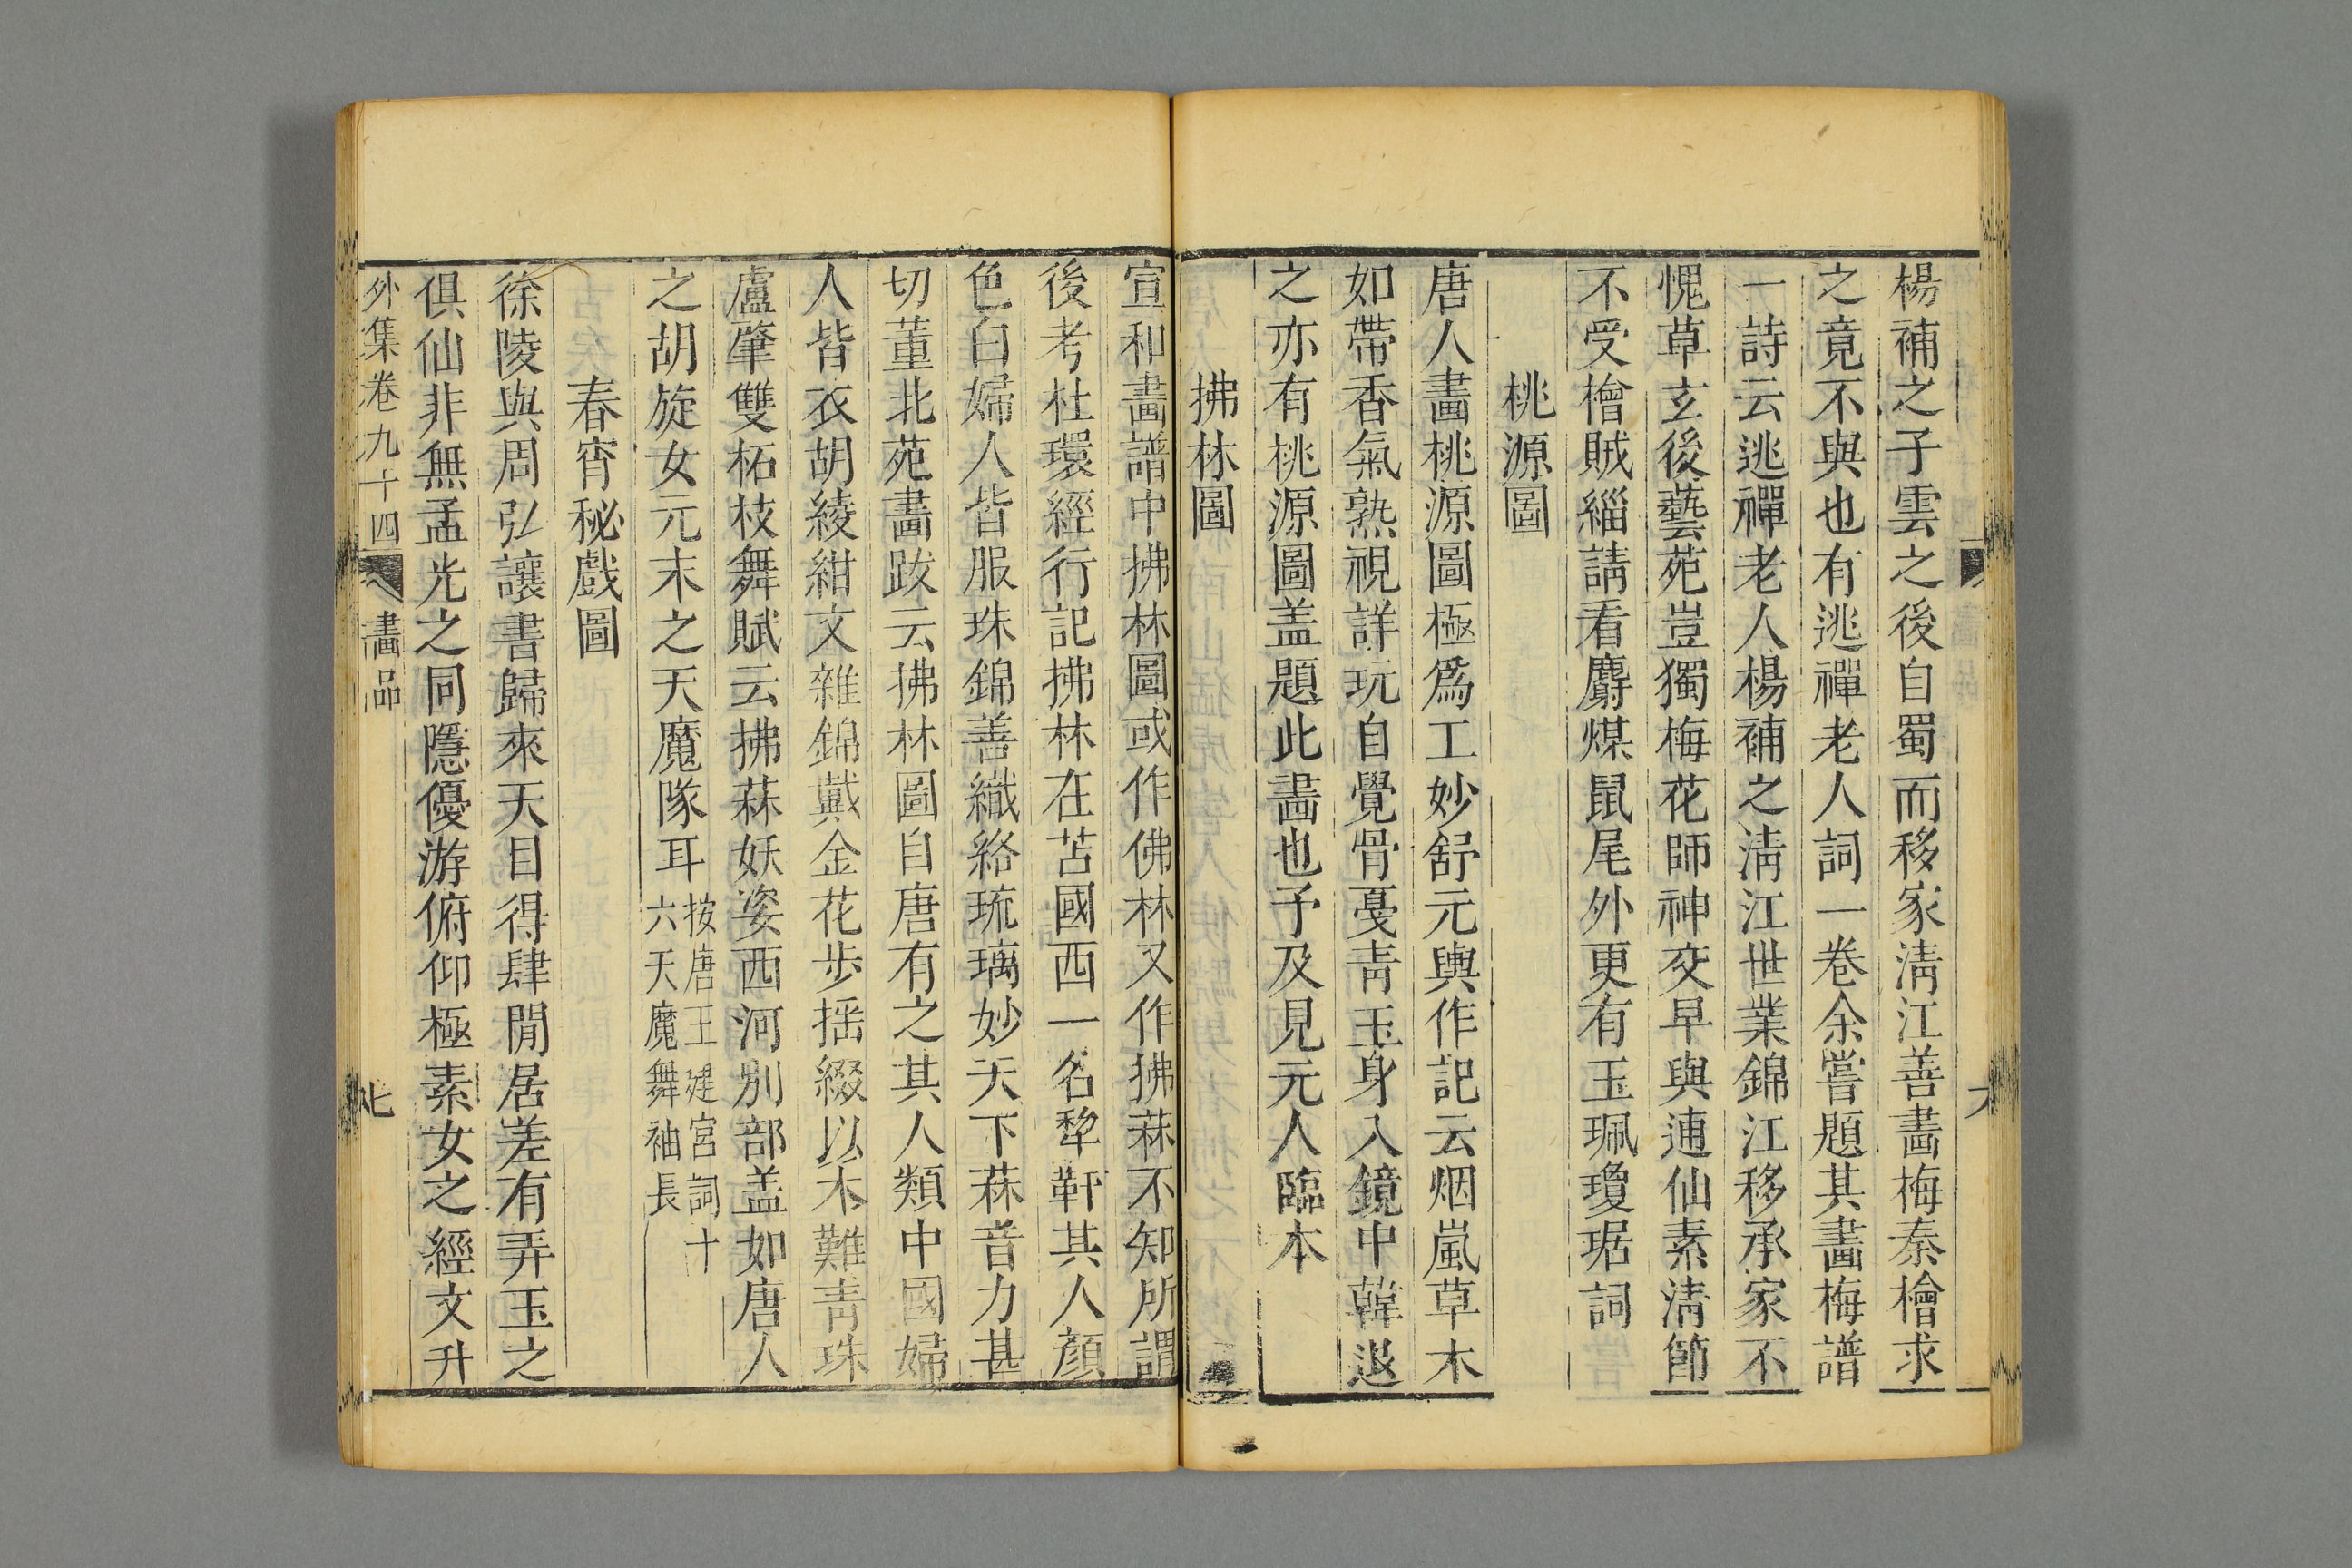 楊補之子雲之後自蜀而移家淸江善畵梅秦檜求
之竟不與也有逃禪老人詞一卷余嘗題其畵梅譜
一詩云逃禪老人楊補之淸江世業錦江移承家不
愧草玄後藝苑豈獨梅花師神交早與逋仙素淸節
不受檜賊緇請看麝煤鼠尾外更有玉珮瓊琚詞
桃源圖
唐人畵桃源圖極爲工妙舒元輿作記云烟嵐草木
如帶香氣熟視詳玩自覺骨戞靑玉身入鏡中韓退
之亦有桃源圖盖題此畵也予及見元人臨本
拂林圖
宣和畵譜中拂林圖或作佛林又作狒菻不知所謂
後考杜環經行記拂林在苫國西一名犂靬其人顏
色白婦人皆服珠錦善織絡琉璃妙天下菻音力甚
切董北苑畵跋云拂林圖自唐有之其人類中國婦
人皆衣胡綾紺文雜錦戴金花步揺綴以木難靑珠
盧肇雙柘枝舞賦云拂菻妖姿西河别部盖如唐人
之胡旋女元末之天魔隊耳按唐王建宮詞十六天魔舞袖長
春宵秘戲圖
徐陵與周弘讓書歸來天目得肆閒居差有弄玉之
俱仙非無孟光之同隱優游俯仰極素女之經文升
外集卷九十四 畵品 七